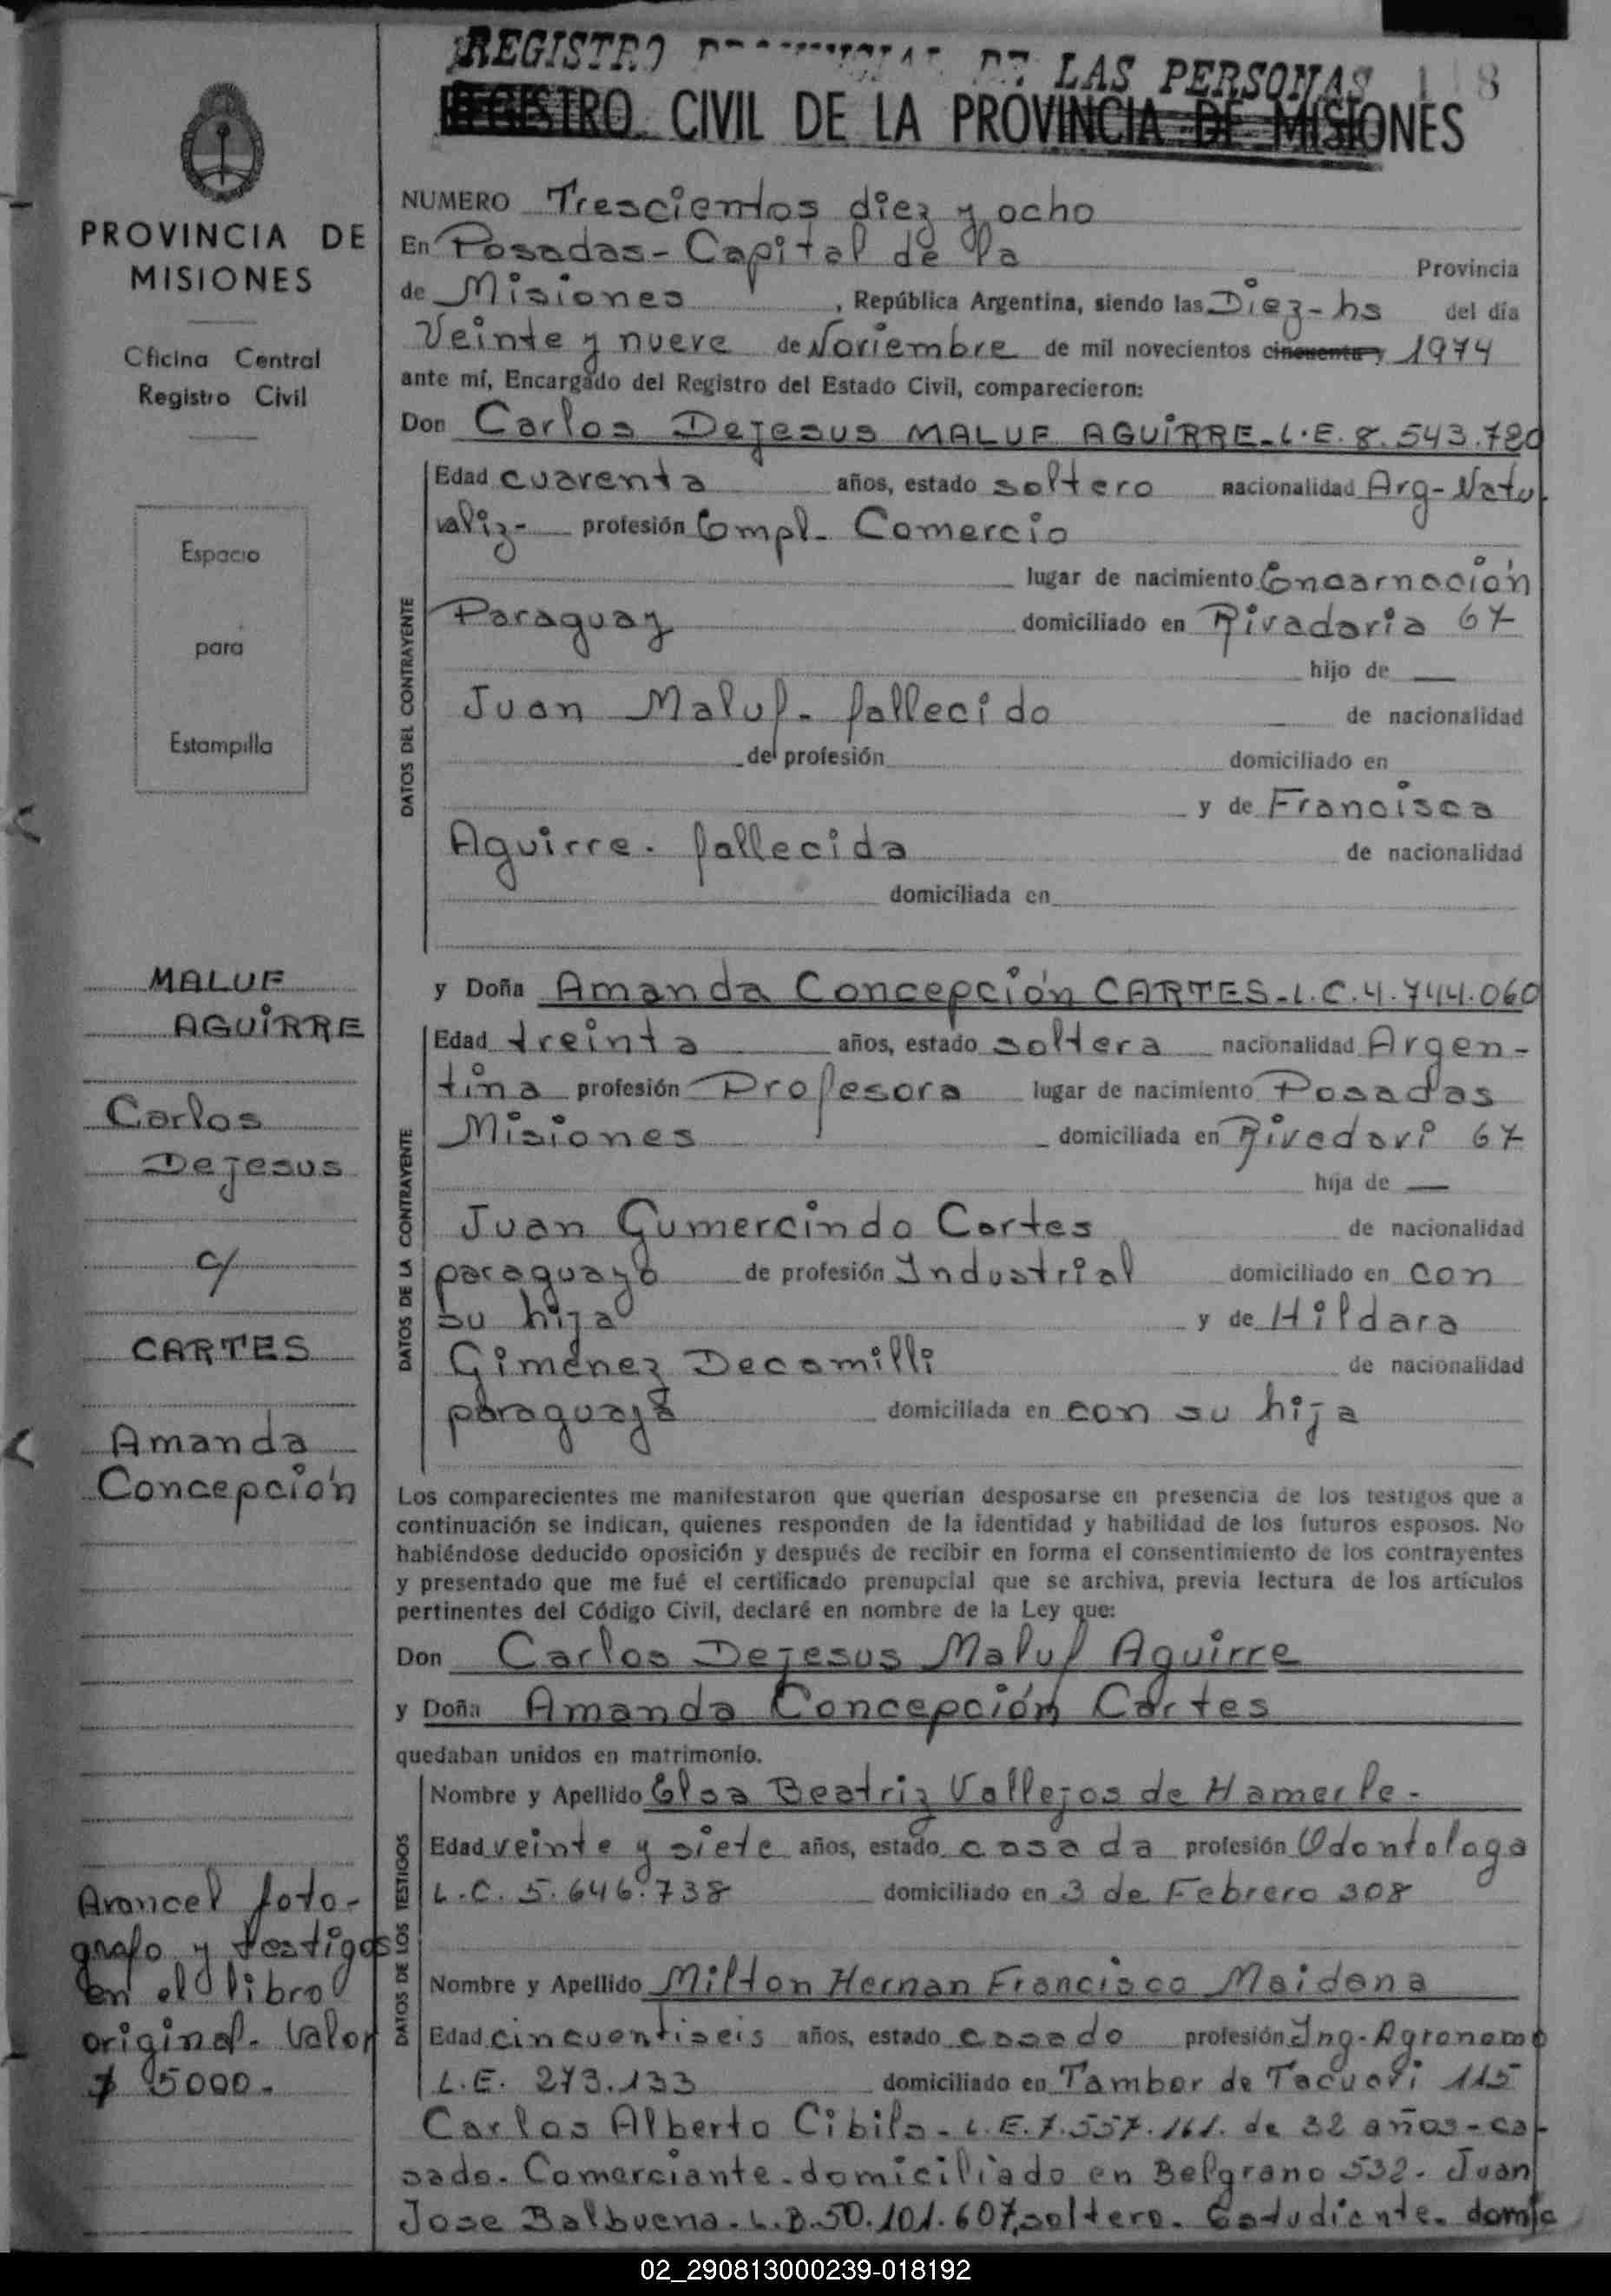 REGISTRO PROVINCIAL DE LAS PERSONAS
REGISTRO CIVIL DE LA PROVINCIA DE MISIONES
PROVINCIA DE
MISIONES
Oficina Central
Registro Civil
Espacio
para
Estampilla
MALUF
AGUIRRE
Carlos
Dejesus
c/
CARTES
Amanda
Concepción
Arancel foto-
grafo y testigos
en el libro
original. Valor
$ 5000.
NUMERO Trescientos diez y ocho
En Posadas - Capital de la Provincia
de Misiones, República Argentina, siendo las Diez - hs del día
Veinte y nueve de Noviembre de mil novecientos cincuenta y 1974
ante mí, Encargado del Registro del Estado Civil, comparecieron:
Don Carlos Dejesus MALUF AGUIRRE - L.E. 8.543.780
DATOS DEL CONTRAYENTE
Edad cuarenta años, estado soltero nacionalidad Arg - Natu
raliz- profesión Empl. Comercio
lugar de nacimiento Encarnación
Paraguay domiciliado en Rivadavia 67
hijo de —
Juan Maluf. fallecido de nacionalidad
de profesión domiciliado en
y de Francisca
Aguirre. fallecida de nacionalidad
domiciliada en
y Doña Amanda Concepción CARTES - L.C. 4.744.060
DATOS DE LA CONTRAYENTE
Edad treinta años, estado soltera nacionalidad Argen-
tina profesión Profesora lugar de nacimiento Posadas
Misiones domiciliada en Rivadavi 67
hija de —
Juan Gumercindo Cartes de nacionalidad
paraguayo de profesión Industrial domiciliado en con
su hija y de Hildara
Giménez Decamilli de nacionalidad
paraguaya domiciliada en con su hija
Los comparecientes me manifestaron que querían desposarse en presencia de los testigos que a
continuación se indican, quienes responden de la identidad y habilidad de los futuros esposos. No
habiéndose deducido oposición y después de recibir en forma el consentimiento de los contrayentes
y presentado que me fué el certificado prenupcial que se archiva, previa lectura de los artículos
pertinentes del Código Civil, declaré en nombre de la Ley que:
Don Carlos Dejesus Maluf Aguirre
y Doña Amanda Concepción Cartes
quedaban unidos en matrimonio.
DATOS DE LOS TESTIGOS
Nombre y Apellido Elsa Beatriz Vallejos de Hamerle -
Edad veinte y siete años, estado casada profesión Odontologa
L.C. 5.646.738 domiciliado en 3 de Febrero 308
Nombre y Apellido Milton Hernan Francisco Maidana
Edad cincuentiseis años, estado casado profesión Ing - Agronomo
L.E. 273.133 domiciliado en Tambor de Tacuari 115
Carlos Alberto Cibils - L.E. 7.557.161. de 32 años - ca-
sado. Comerciante. domiciliado en Belgrano 532. Juan
Jose Balbuena. L.D. 50.101.607, soltero. Estudiante. domic
02_290813000239-018192